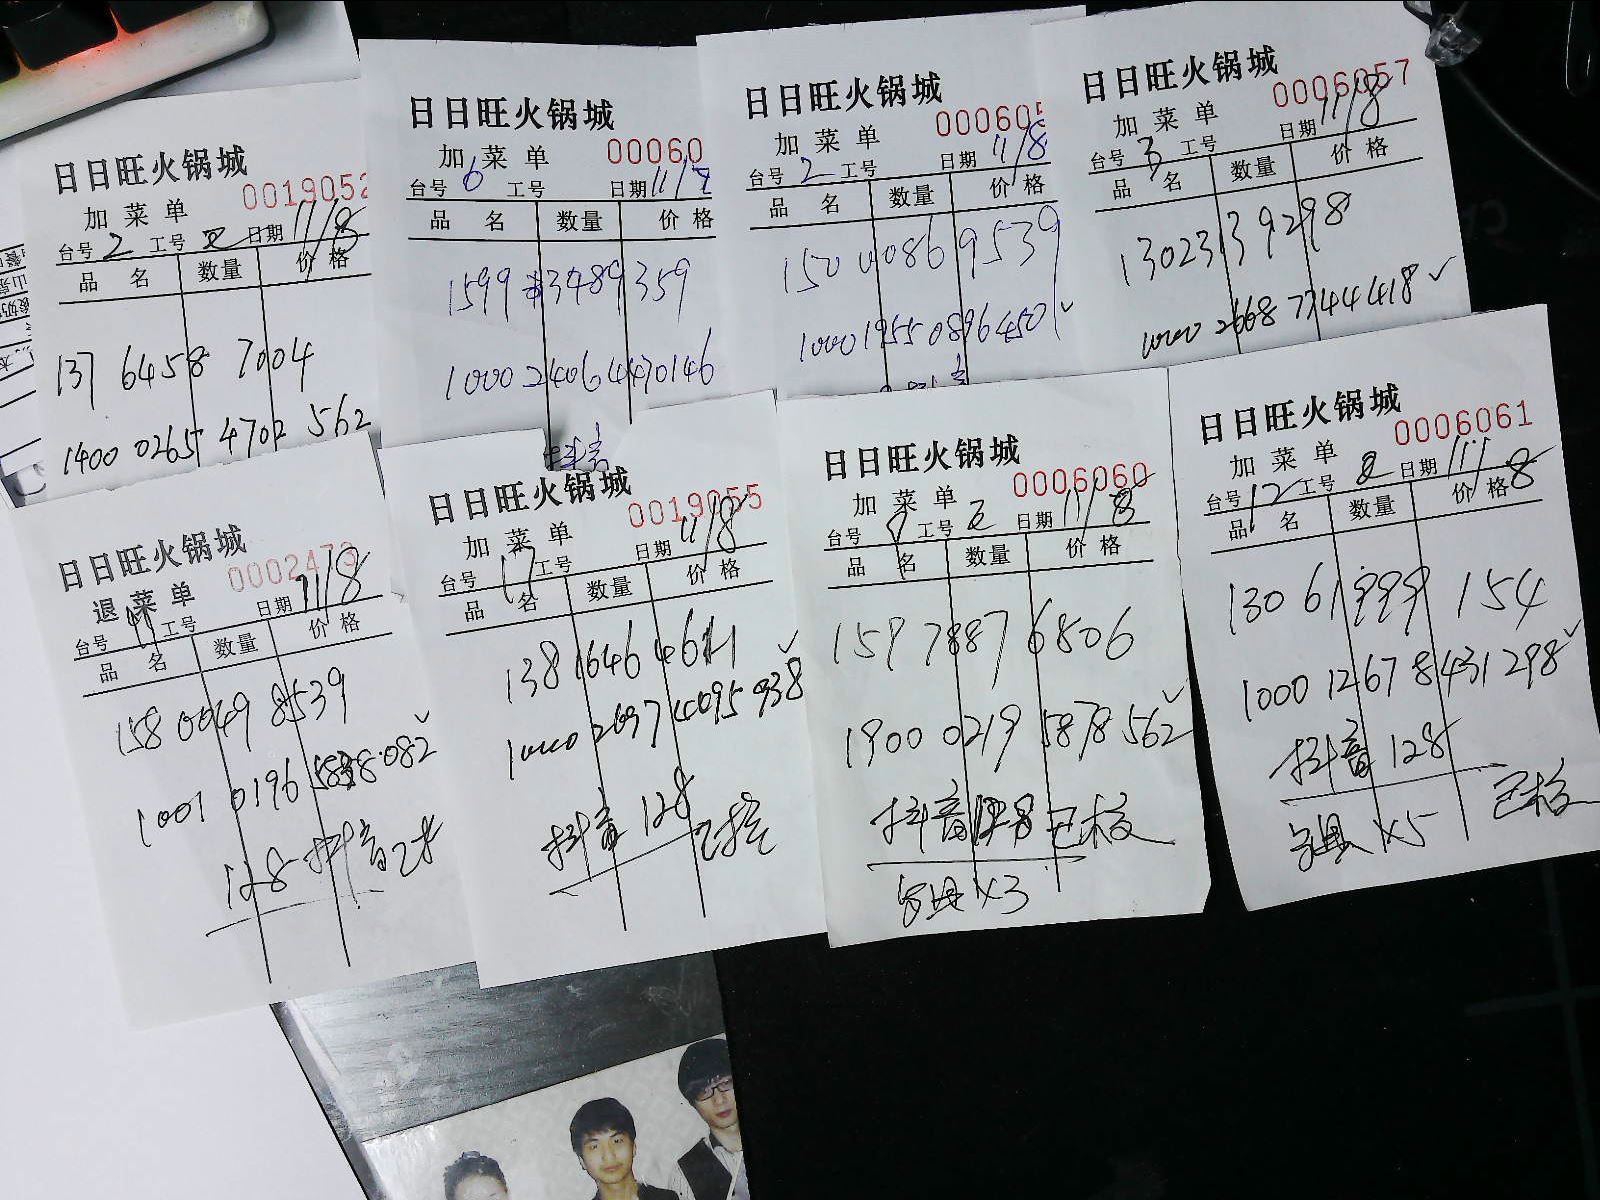 日日旺火锅城
0019052
加菜单
台号 2 工号 日期 11/8
品名 数量 价格
137 6458 7004
1400 0265 4702 562
日日旺火锅城
00060
加菜单
台号 6 工号 日期
品名 数量 价格
1599 3489359
1000 2406 4470146
日日旺火锅城
000605
加菜单
台号 2 工号 日期 11/8
品名 数量 价格
150 0086 9539
1000 1955 0896 4501
日日旺火锅城
0006057
加菜单
台号 3 工号 日期 11/8
品名 数量 价格
13023139298
1000 2668 7744 418
日日旺火锅城
0002473
退菜单
台号 工号 日期 11/8
品名 数量 价格
158 0049 8539
1001 0196 082
128 抖音
日日旺火锅城
0019055
加菜单
台号 17 工号 日期 11/8
品名 数量 价格
138 1646
1000 2697 4095 938
抖音 128
日日旺火锅城
0006060
加菜单
台号 8 工号 日期 11/8
品名 数量 价格
159 7887 6806
1900 0219 5878 562
抖音 128 已核
×3
日日旺火锅城
0006061
加菜单
台号 12 工号 日期 11/8
品名 数量 价格
130 61999 154
1000 1267 8431 298
抖音 128
已核
×5